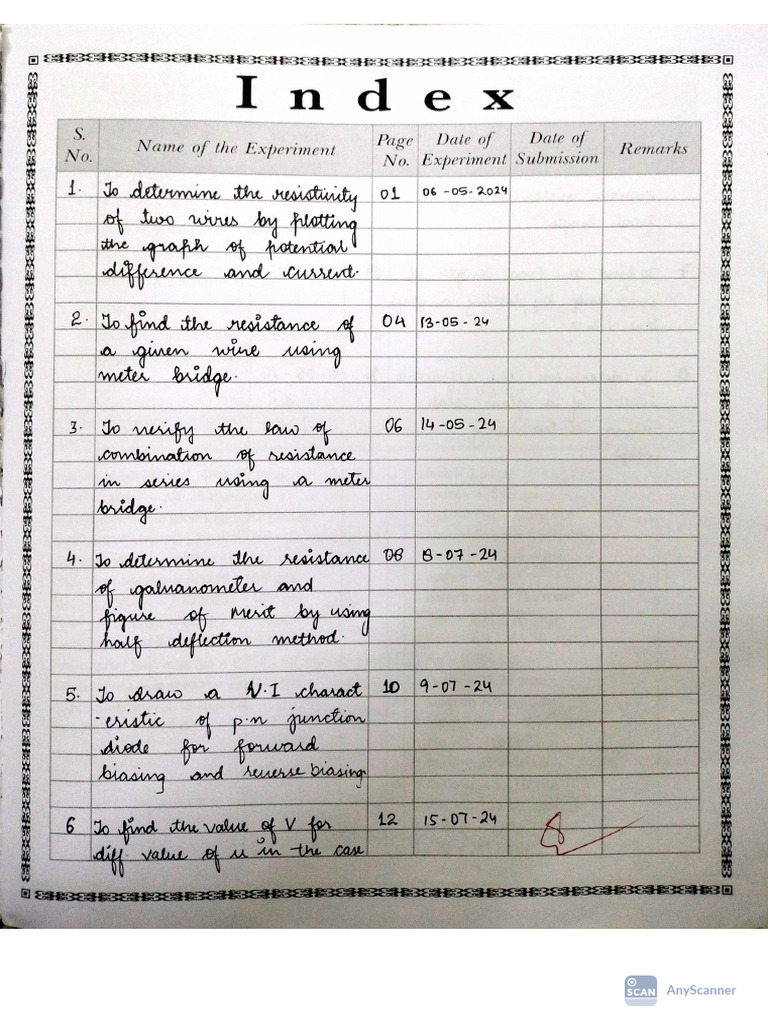 Index
S. No. Name of the Experiment Page No. Date of Experiment Date of Submission Remarks
1. To determine the resistivity 01 06-05-2024
of two wires by plotting
the graph of potential
difference and current.
2. To find the resistance of 04 13-05-24
a given wire using
meter bridge.
3. To verify the law of 06 14-05-24
combination of resistance
in series using a meter
bridge.
4. To determine the resistance 08 8-07-24
of galvanometer and
figure of merit by using
half deflection method.
5. To draw a V-I charact 10 9-07-24
-eristic of p.n junction
diode for forward
biasing and reverse biasing
6 To find the value of V for 12 15-07-24
diff. value of u in the case
SCAN AnyScanner